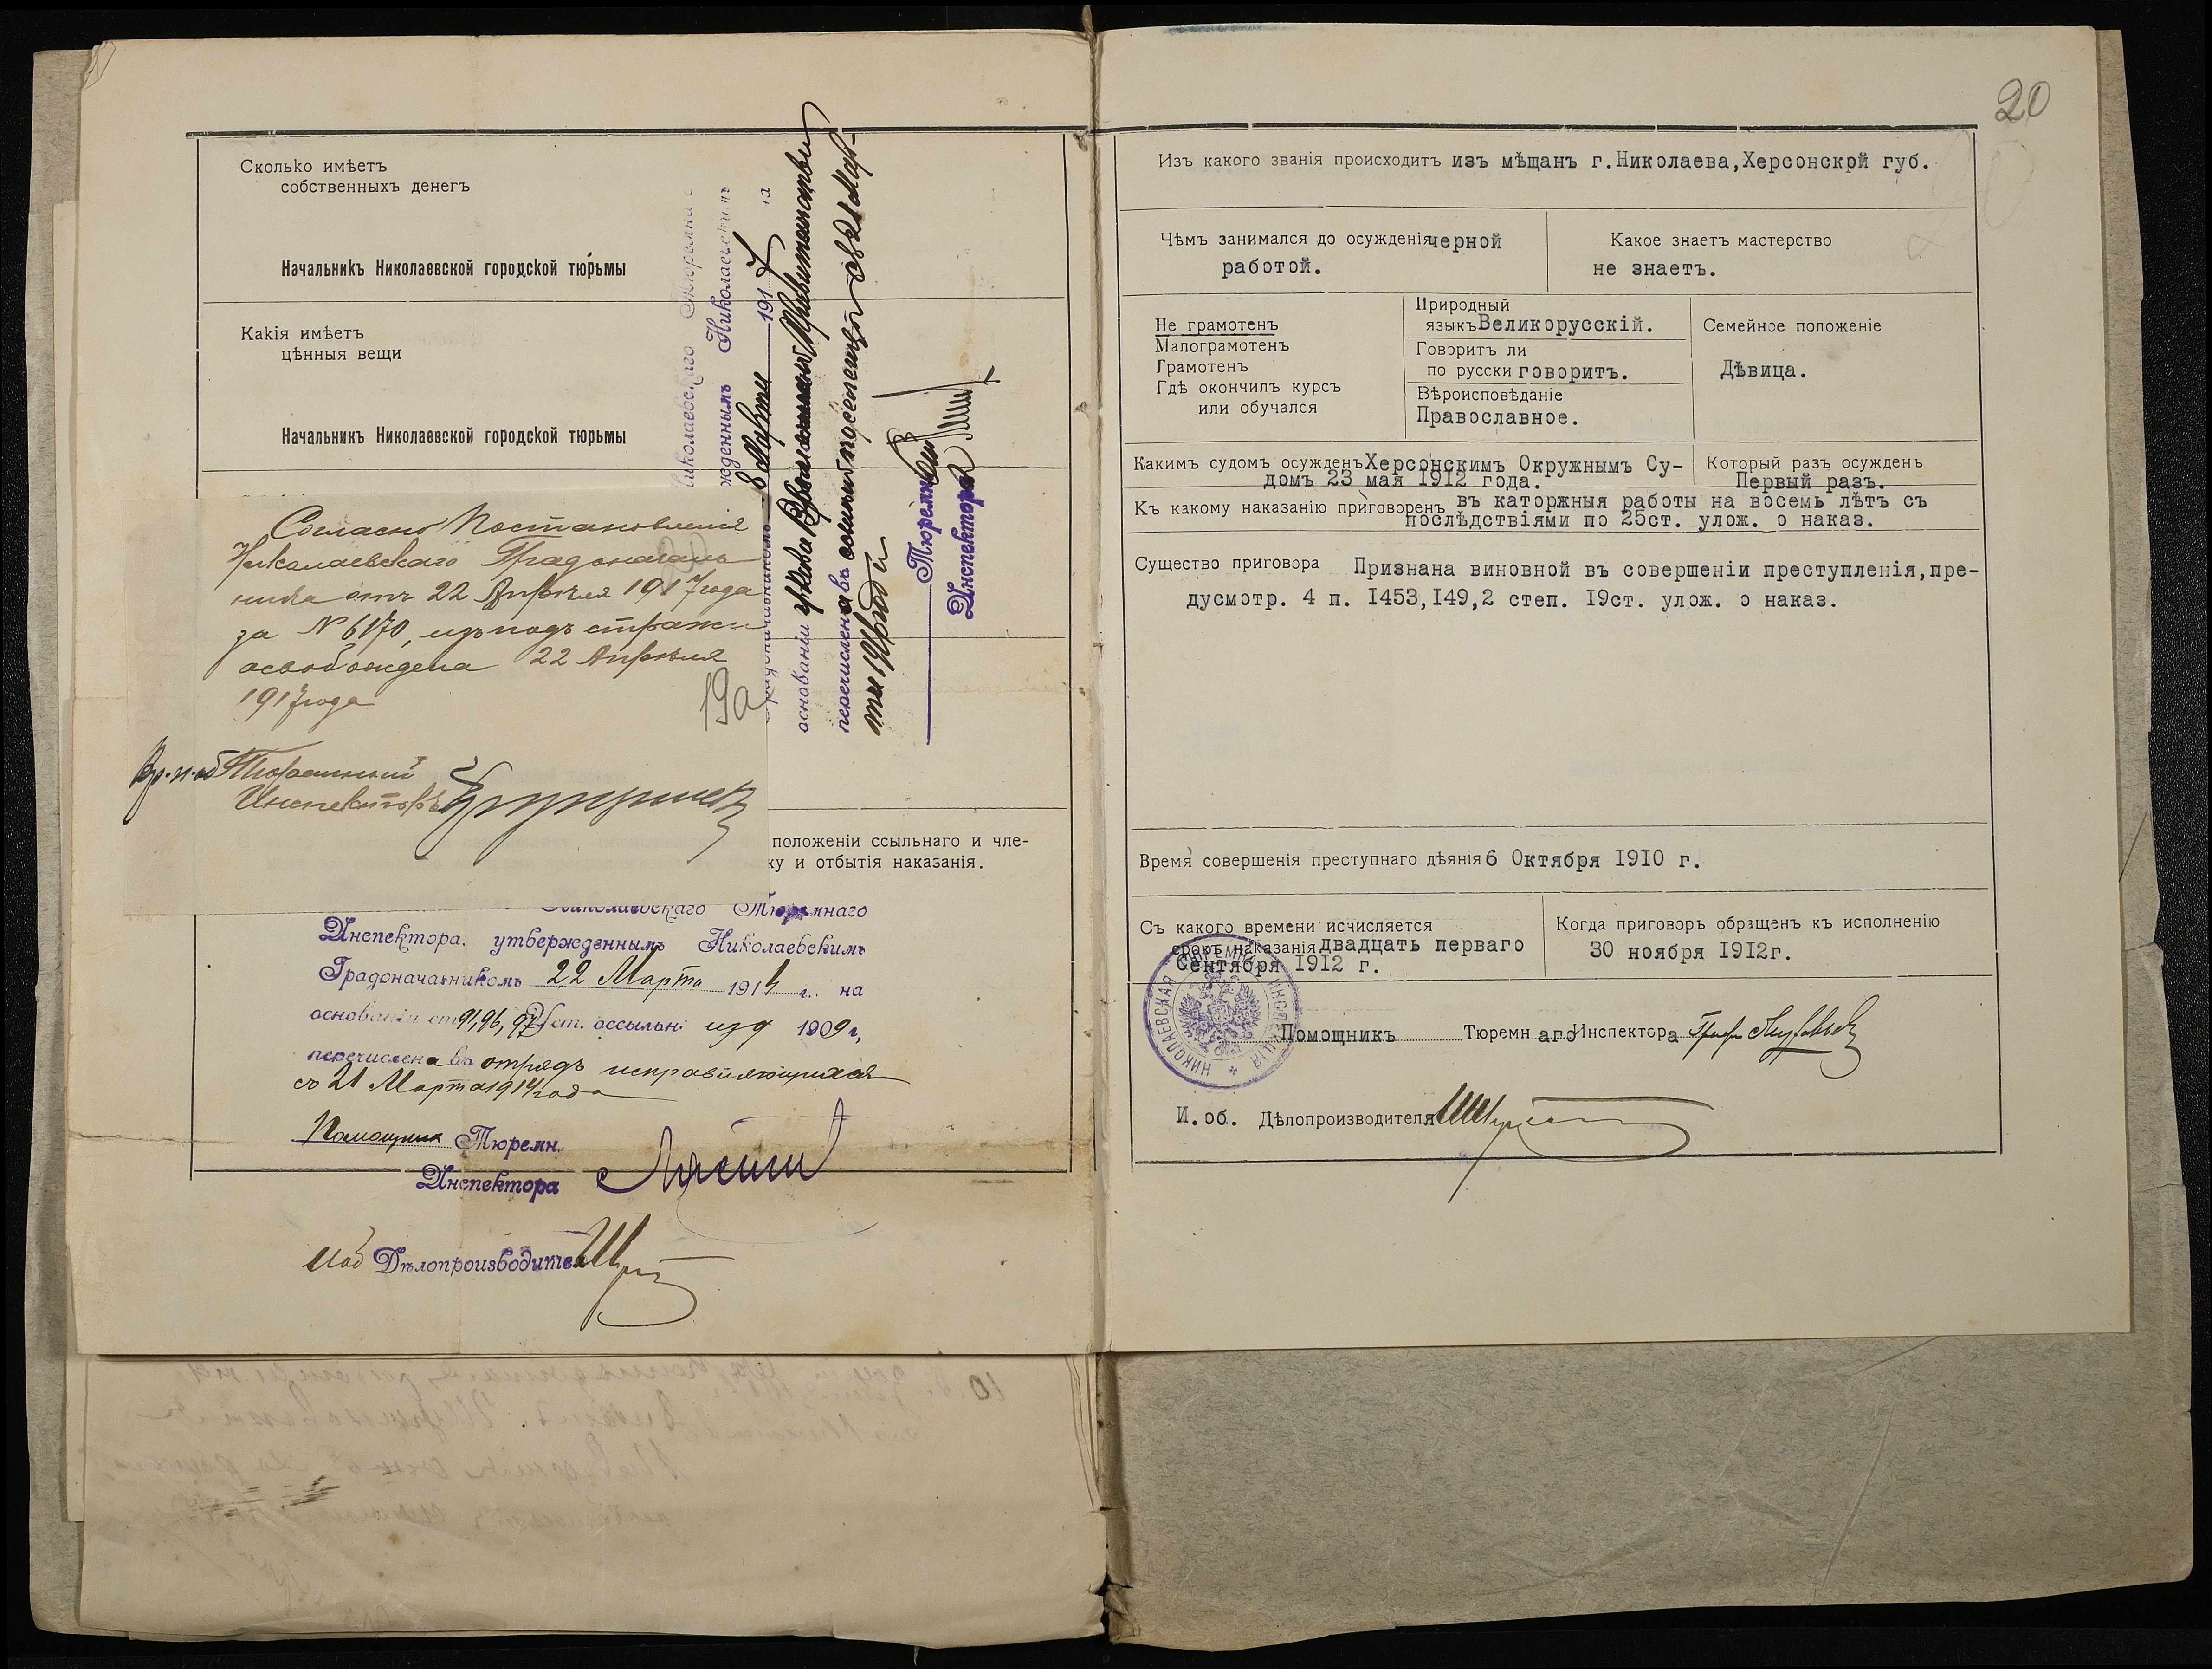 Сколько имѣетъ
собственныхъ денегъ
Начальникъ Николаевской городской тюрьмы
Какія имѣетъ
цѣнныя вещи
Начальникъ Николаевской городской тюрьмы
Согласно Постановленія
Николаевскаго Градоначаль
ника отъ 22 Апрѣля 1917 года
за № 6170, изъ подъ стражи
освобождена 22 Апрѣля
1917 года
19а
Вр. и. об Тюремный
Инспекторъ
иколаевскаго Тюремна
жденнымъ Николаевскимъ
8 Марта 1917
основаніи указа Временнаго Правительства
перечислена въ ссыльно поселенцы съ 21 Мар-
та 1917 года
Тюремн
Инспектора
положеніи ссыльнаго и чле-
ку и отбытія наказанія.
Николаевскаго Тюремнаго
Инспектора, утвержденнымъ Николаевскимъ
Градоначаьникомъ 22 Марта 1914 г. на
основаніи ст 91, 96, 97 Уст. оссыльн: изд 1909 г,
перечислена въ отрядъ исправляющихся
съ 21 Марта 1914 года
Помощник Тюремн.
Инспектора
И об Дѣлопроизводителя
20
Изъ какого званія происходитъ изъ мѣщанъ г.Николаева,Херсонскрй губ.
Чѣмъ занимался до осужденія черной
работой.
Какое знаетъ мастерство
не знаетъ.
Не грамотенъ
Малограмотенъ
Грамотенъ
Гдѣ окончилъ курсъ
или обучался
Природный
языкъ Великорусскій.
Говоритъ ли
по русски говоритъ.
Вѣроисповѣданіе
Православное.
Семейное положеніе
Дѣвица.
Какимъ судомъ осужденъ Херсонскимъ Окружнымъ Су-
домъ 23 мая 1912 года.
Который разъ осужденъ
Первый разъ.
Къ какому наказанію приговоренъ въ каторжныя работы на восемь лѣтъ съ
послѣдствіями по 25ст. улож. о наказ.
Существо приговора Признана виновной въ совершеніи преступленія,пре-
дусмотр. 4 п. 1453,149,2 степ. 19ст. улож. о наказ.
Время совершенія преступнаго дѣянія 6 Октября 1910 г.
Съ какого времени исчисляется
срокъ наказанія двадцать перваго
Сентября 1912 г.
Когда приговоръ обращенъ къ исполненію
30 ноября 1912г.
НИКОЛАЕВСКАЯ ТЮРЕМН ИНСПЕКЦІЯ
Помощникъ Тюремн аго Инспектора
И. об. Дѣлопроизводителя
10